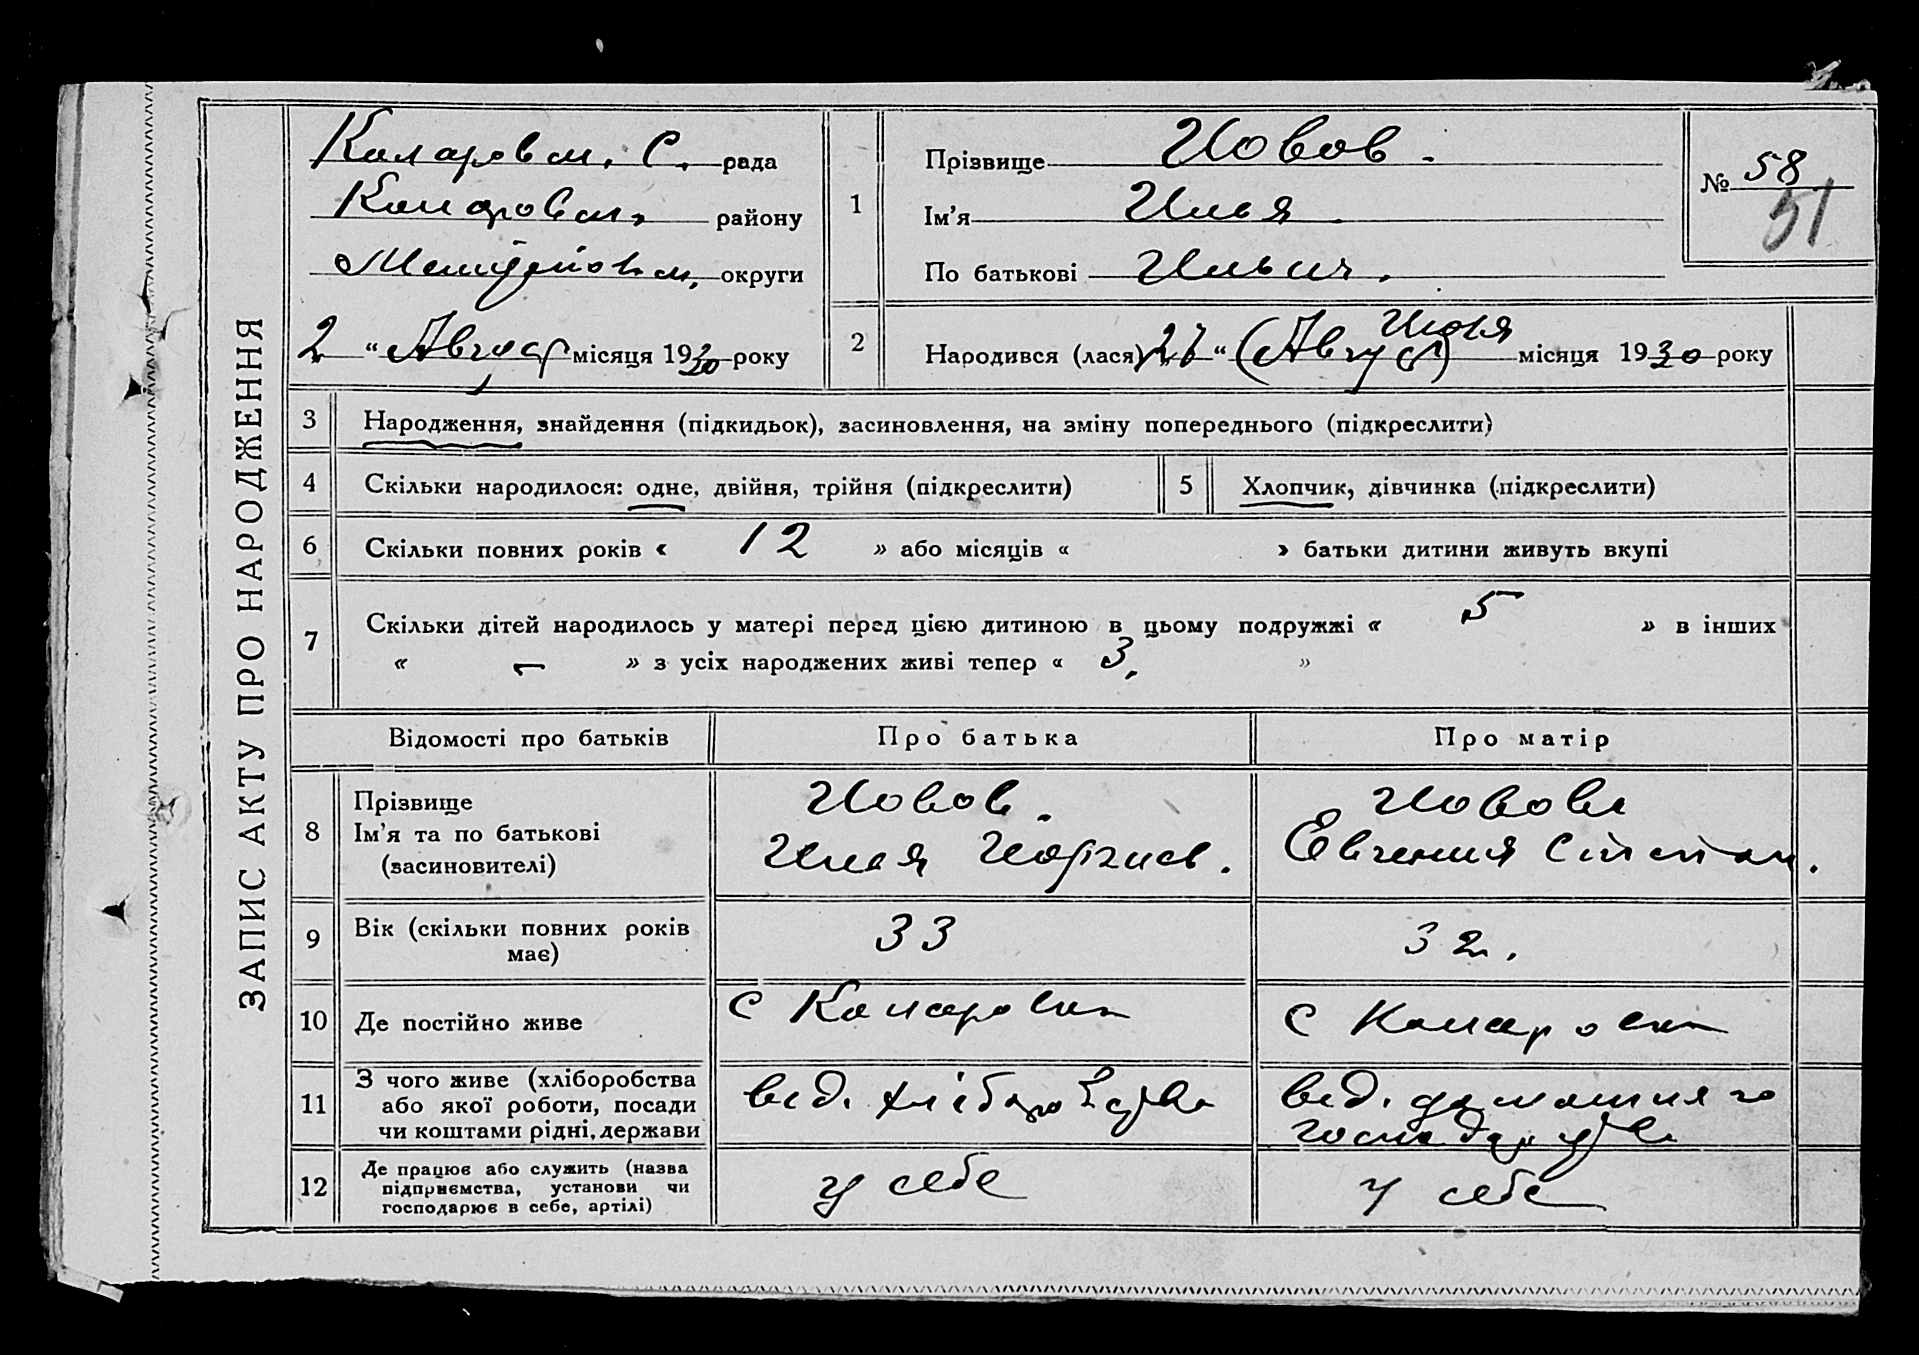 ЗАПИС АКТУ ПРО НАРОДЖЕННЯ
Коларовск. С. рада
Коларовск. району
Мелитопольск. округи
2 " Август місяця 1930 року
1
Прізвище Йовов.
Ім'я Илья
По батькові Ильич.
№ 58
51
2
Народився (лася) 27 " (Август) Июля місяця 1930 року
3 Народження, знайдення (підкидьок), засиновлення, на зміну попереднього (підкреслити)
4 Скільки народилося: одне, двійня, трійня (підкреслити)
5 Хлопчик, дівчинка (підкреслити)
6 Скільки повних років « 12 » або місяців « » батьки дитини живуть вкупі
7 Скільки дітей народилось у матері перед цією дитиною в цьому подружжі « 5 » в інших
« – » з усіх народжених живі тепер « 3, »
Відомості про батьків Про батька Про матір
8 Прізвище
Ім'я та по батькові
(засиновителі)
Йовов.
Илья Йоргиев.
Йовова
Евгения Степан.
9 Вік (скільки повних років
має)
33
32.
10 Де постійно живе
с Коларовка
с Коларовка
11 З чого живе (хліборобства
або якої роботи, посади
чи коштами рідні, держави
вед.
вед. домашняго
12 Де працює або служить (назва
підприємства, установи чи
господарює в себе, артілі)
у себе
у себе